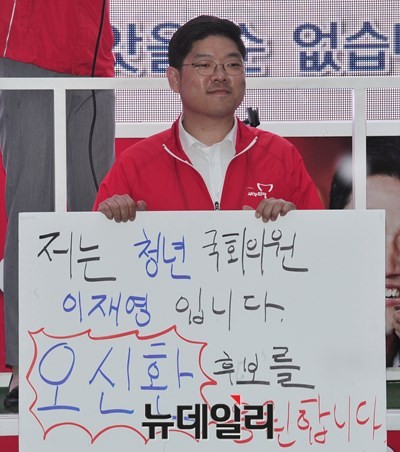 수 없습니
새누리당
저는 청년 국회의원
이재영 입니다.
오신환 후보를
원합니다.
뉴데일리